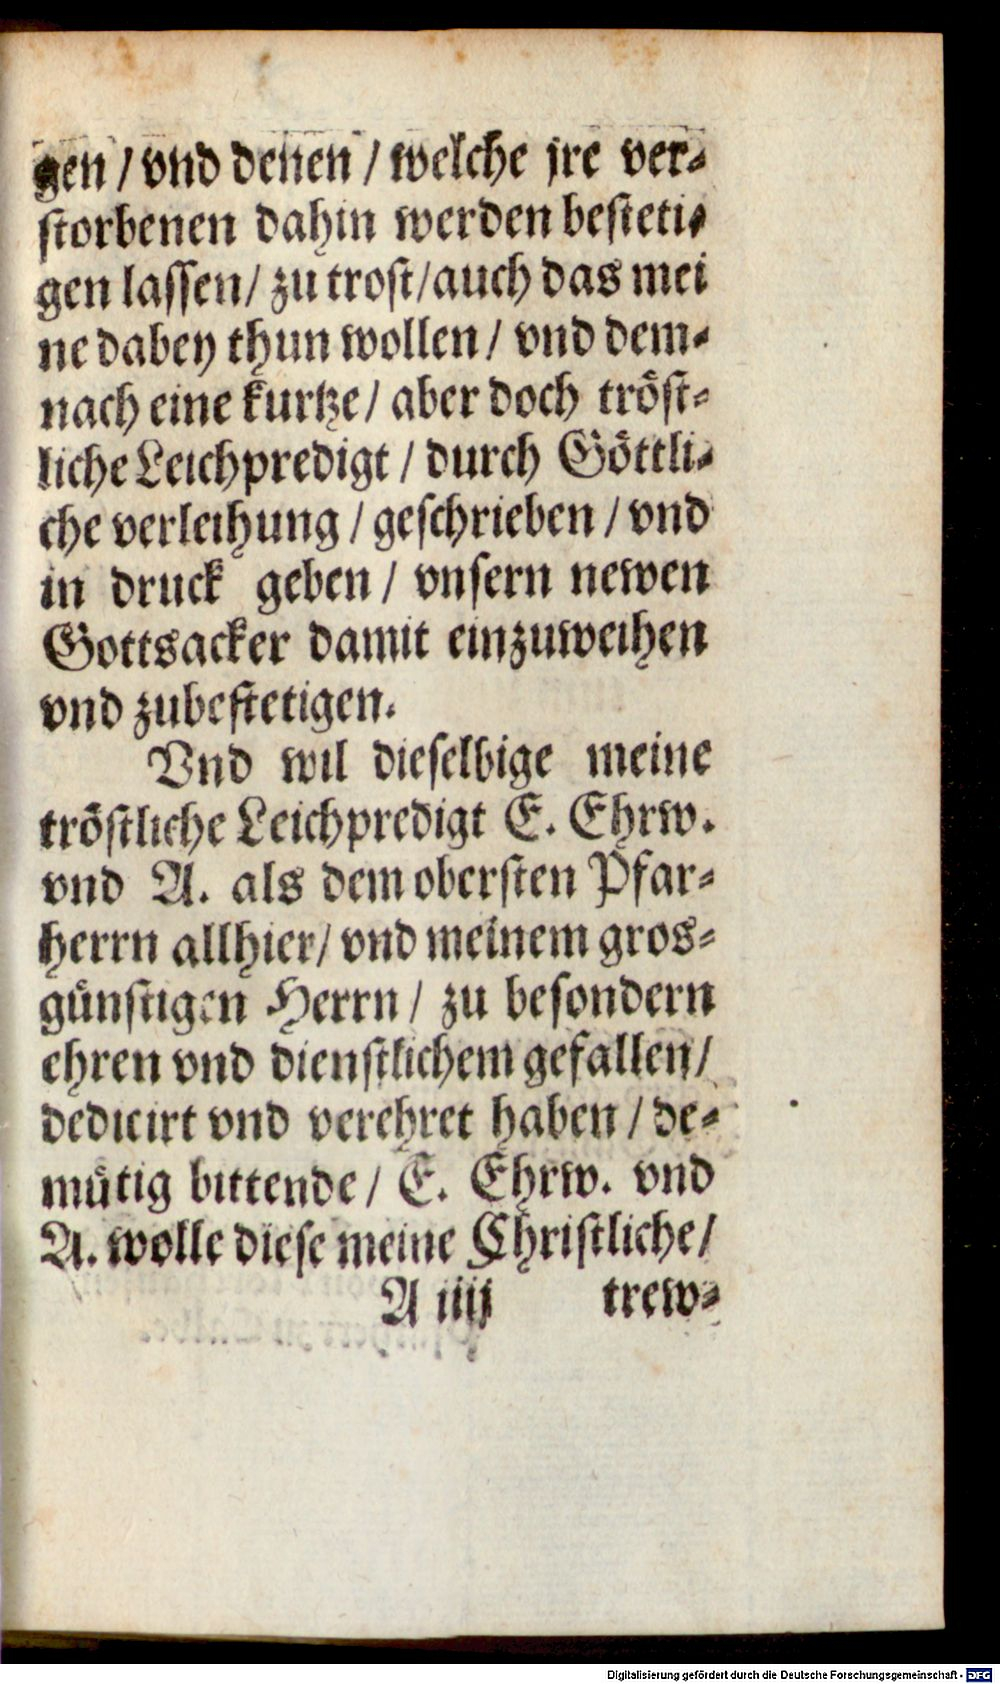 gen / vnd denen / welche jre ver-
storbenen dahin werden besteti-
gen lassen / zu trost / auch das mei
ne dabey thun wollen / vnd dem-
nach eine kurtze / aber doch tröst-
liche Leichpredigt / durch Göttli-
che verleihung / geschrieben / vnd
in druck geben / vnsern newen
Gottsacker damit einzuweihen
vnd zubestetigen.
Vnd wil dieselbige meine
tröstliche Leichpredigt E. Ehrw.
vnd A. als dem obersten Pfar-
herrn allhier / vnd meinem gros-
günstigen Herrn / zu besondern
ehren vnd dienstlichem gefallen /
dedicirt vnd verehret haben / de-
mütig bittende / E. Ehrw. vnd
A. wolle diese meine Christliche /
A iiij trew-
Digitalisierung gefördert durch die Deutsche Forschungsgemeinschaft - DFG